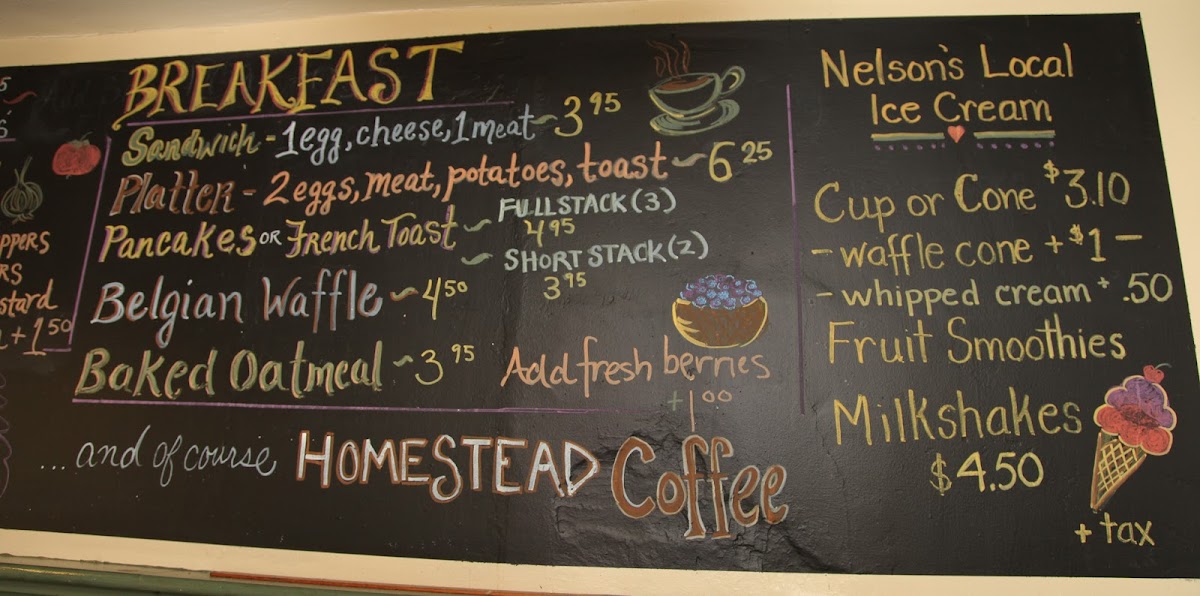 ppers
rs
stard
+1.50
BREAKFAST
Sandwich - 1 egg, cheese, 1 meat ~ 3 95
Platter - 2 eggs, meat, potatoes, toast ~ 6 25
Pancakes or French Toast ~ FULL STACK (3)
4 95
~ SHORT STACK (2)
3 95
Belgian Waffle ~ 4 50
Baked Oatmeal ~ 3 95
Add fresh berries
+1 00
... and of course HOMESTEAD Coffee
Nelson's Local
Ice Cream
Cup or Cone $3.10
- waffle cone + $1 -
- whipped cream + .50
Fruit Smoothies
Milkshakes
$4.50
+ tax